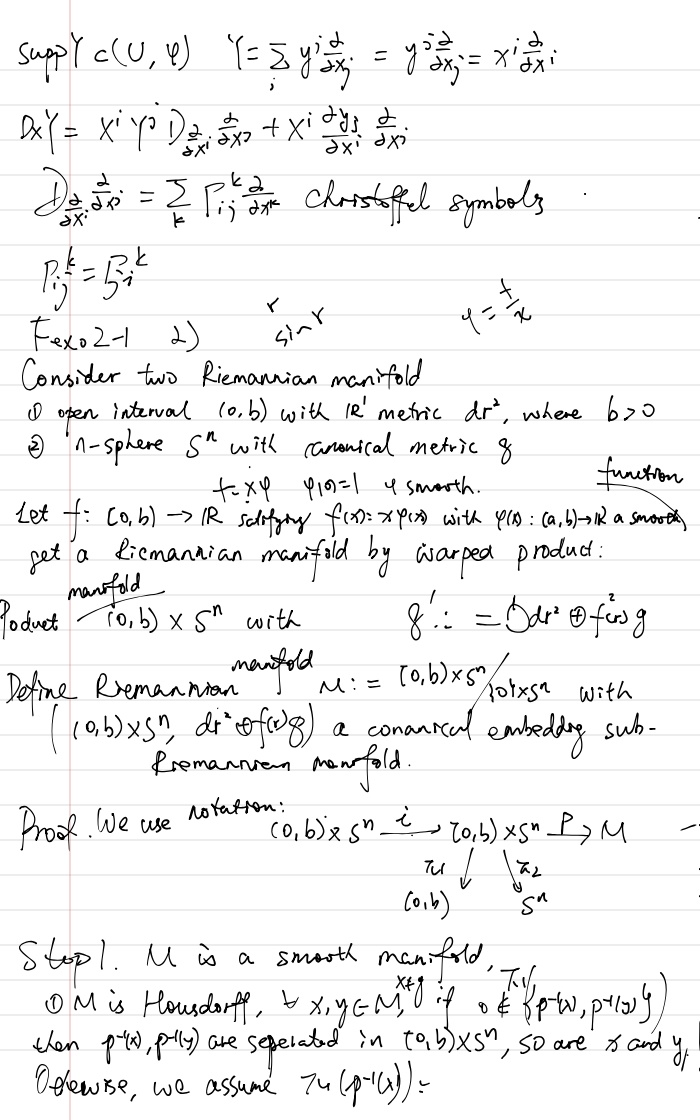 supp Y ⊂ (U, φ)   Y = Σ_j y^j ∂/∂x_j = y^j ∂/∂x_j = x^i ∂/∂x_i
D_X Y = X^i Y^j D_{∂/∂x^i} ∂/∂x^j + X^i ∂y_j/∂x^i ∂/∂x^j
D_{∂/∂x^i} ∂/∂x^j = Σ_k Γ_{ij}^k ∂/∂x^k   Christoffel symbols
Γ_{ij}^k = Γ_{ji}^k
Fexo2-1   2)   r/sin r   φ = f/x
Consider two Riemannian manifold
① open interval (0, b) with ℝ¹ metric dr², where b>0
② n-sphere Sⁿ with canonical metric g
f = xφ   φ(0)=1   φ smooth.   function
Let f: [0,b) → ℝ satifying f(x)=xφ(x) with φ(x): (a,b)→ℝ a smooth
get a Riemannian manifold by warped product:
manifold
Poduct (0,b) × Sⁿ with   g' := dr² ⊕ f²(r) g
manifold
Define Riemannian M := [0,b)×Sⁿ/{0}×Sⁿ with
((0,b)×Sⁿ, dr² ⊕ f(r)g) a conanical embeddig sub-
Riemannien manifold.
Proof. We use notation: (0,b)×Sⁿ →i [0,b)×Sⁿ →P M
π1   π2
(0,b)   Sⁿ
Step1. M is a smooth manifold,
① M is Housdorff, ∀ x,y∈M, x≠y if 0 ∉ π1({p⁻¹(x), p⁻¹(y)})
then p⁻¹(x), p⁻¹(y) are seperated in [0,b)×Sⁿ, so are x and y,
Otherwise, we assume π1(p⁻¹(x))=